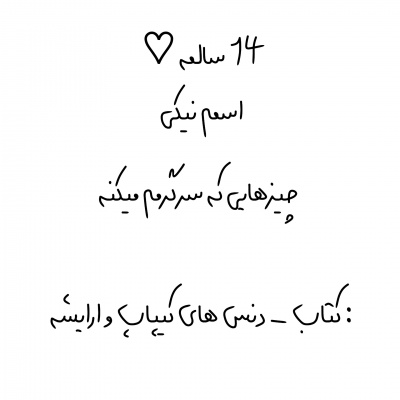 14 سالمه ♡
اسمم نیکی
چیزهایی که سرگرمم میکنه
: کتاب _ دنس های کیپاپ و ارایشه